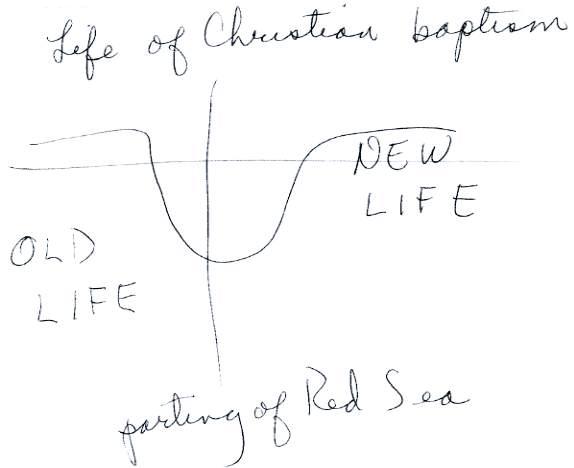 Life of Christian baptism
NEW
LIFE
OLD
LIFE
parting of Red Sea